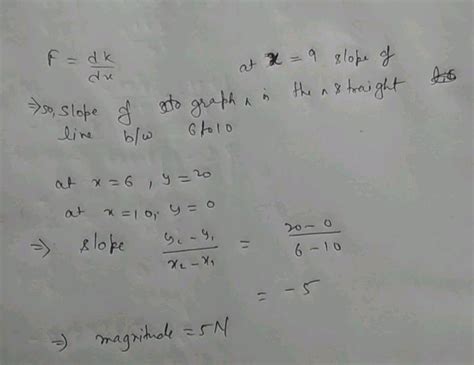 F = dk/dx at x = 9 slope of
⇒ so, slope of graph is the straight
line b/w 6 to 10
at x = 6, y = 20
at x = 10, y = 0
⇒ slope (y₂ - y₁)/(x₂ - x₁) = (20 - 0)/(6 - 10)
= -5
⇒ magnitude = 5N